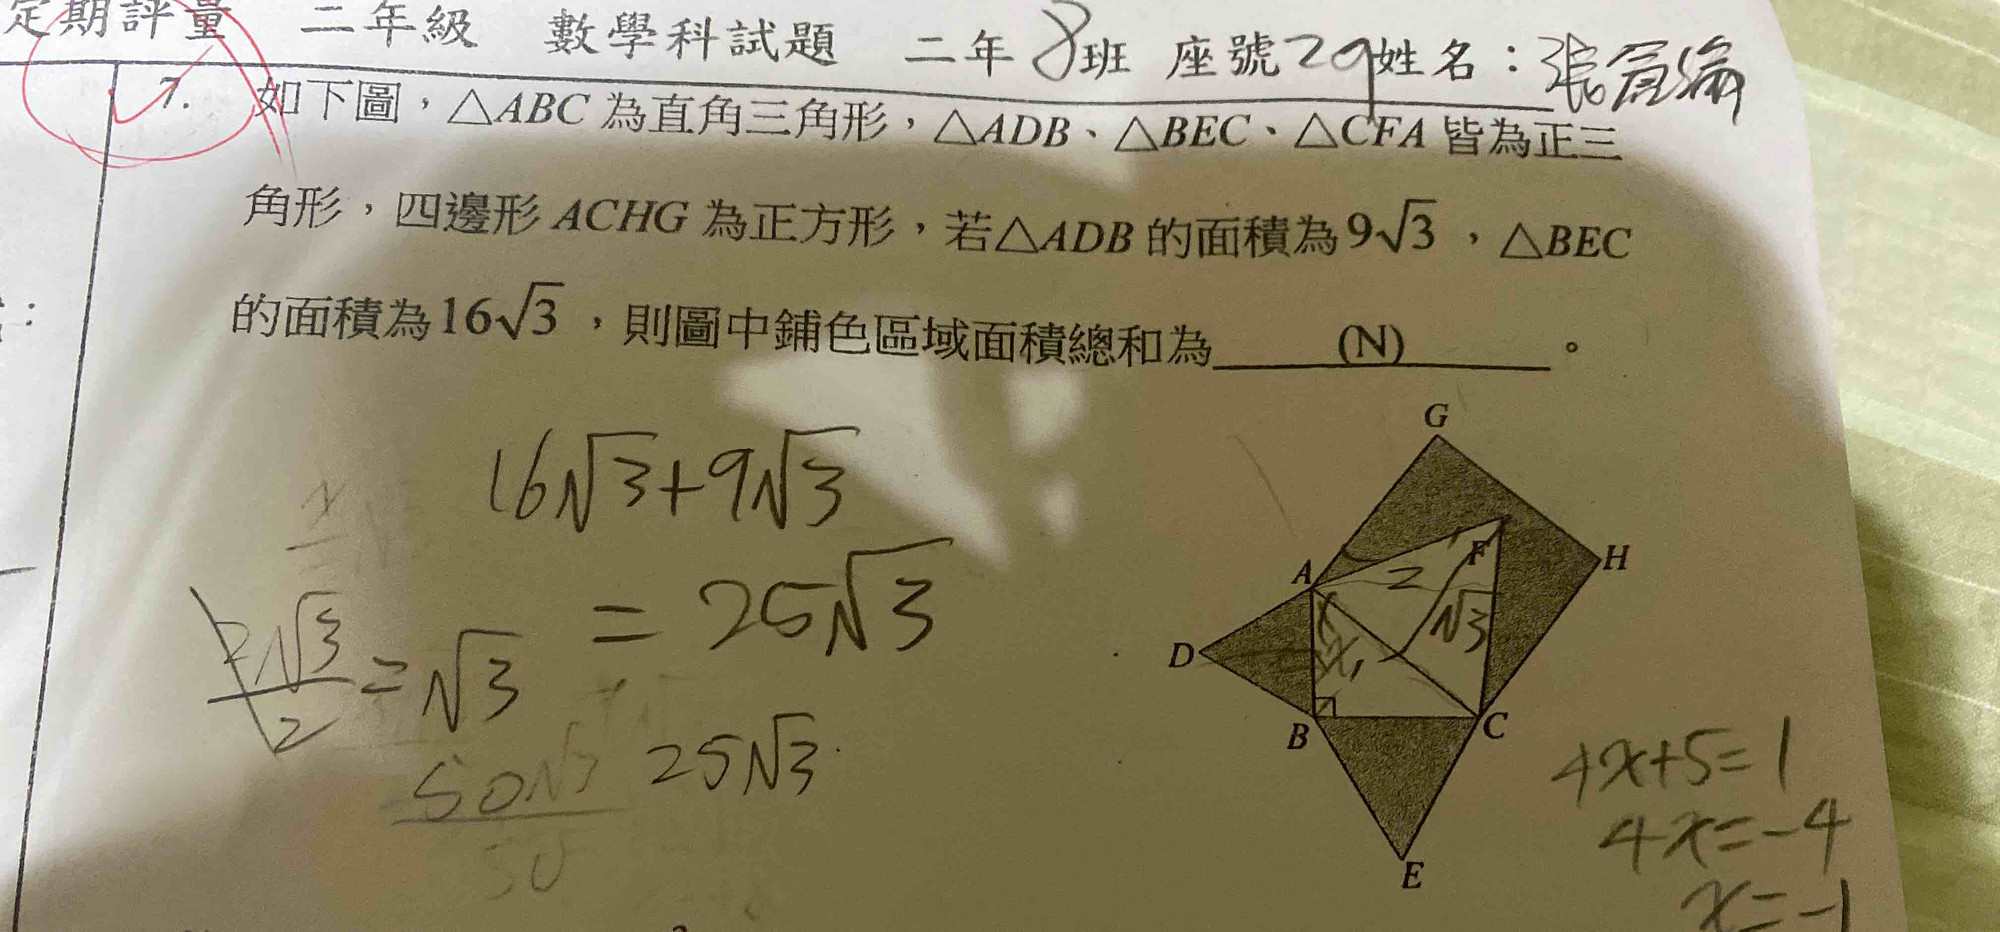 定期評量 二年級 數學科試題 二年8班 座號29姓名：張
7. 如下圖，△ABC 為直角三角形，△ADB、△BEC、△CFA 皆為正三
角形，四邊形 ACHG 為正方形，若△ADB 的面積為 9√3，△BEC
的面積為 16√3，則圖中鋪色區域面積總和為 (N) 。
16√3+9√3
= 25√3
2√3/2 = √3
25√3
50√3
50
G
A
F
H
2
√3
D
B
C
E
4x+5=1
4x=-4
x=-1